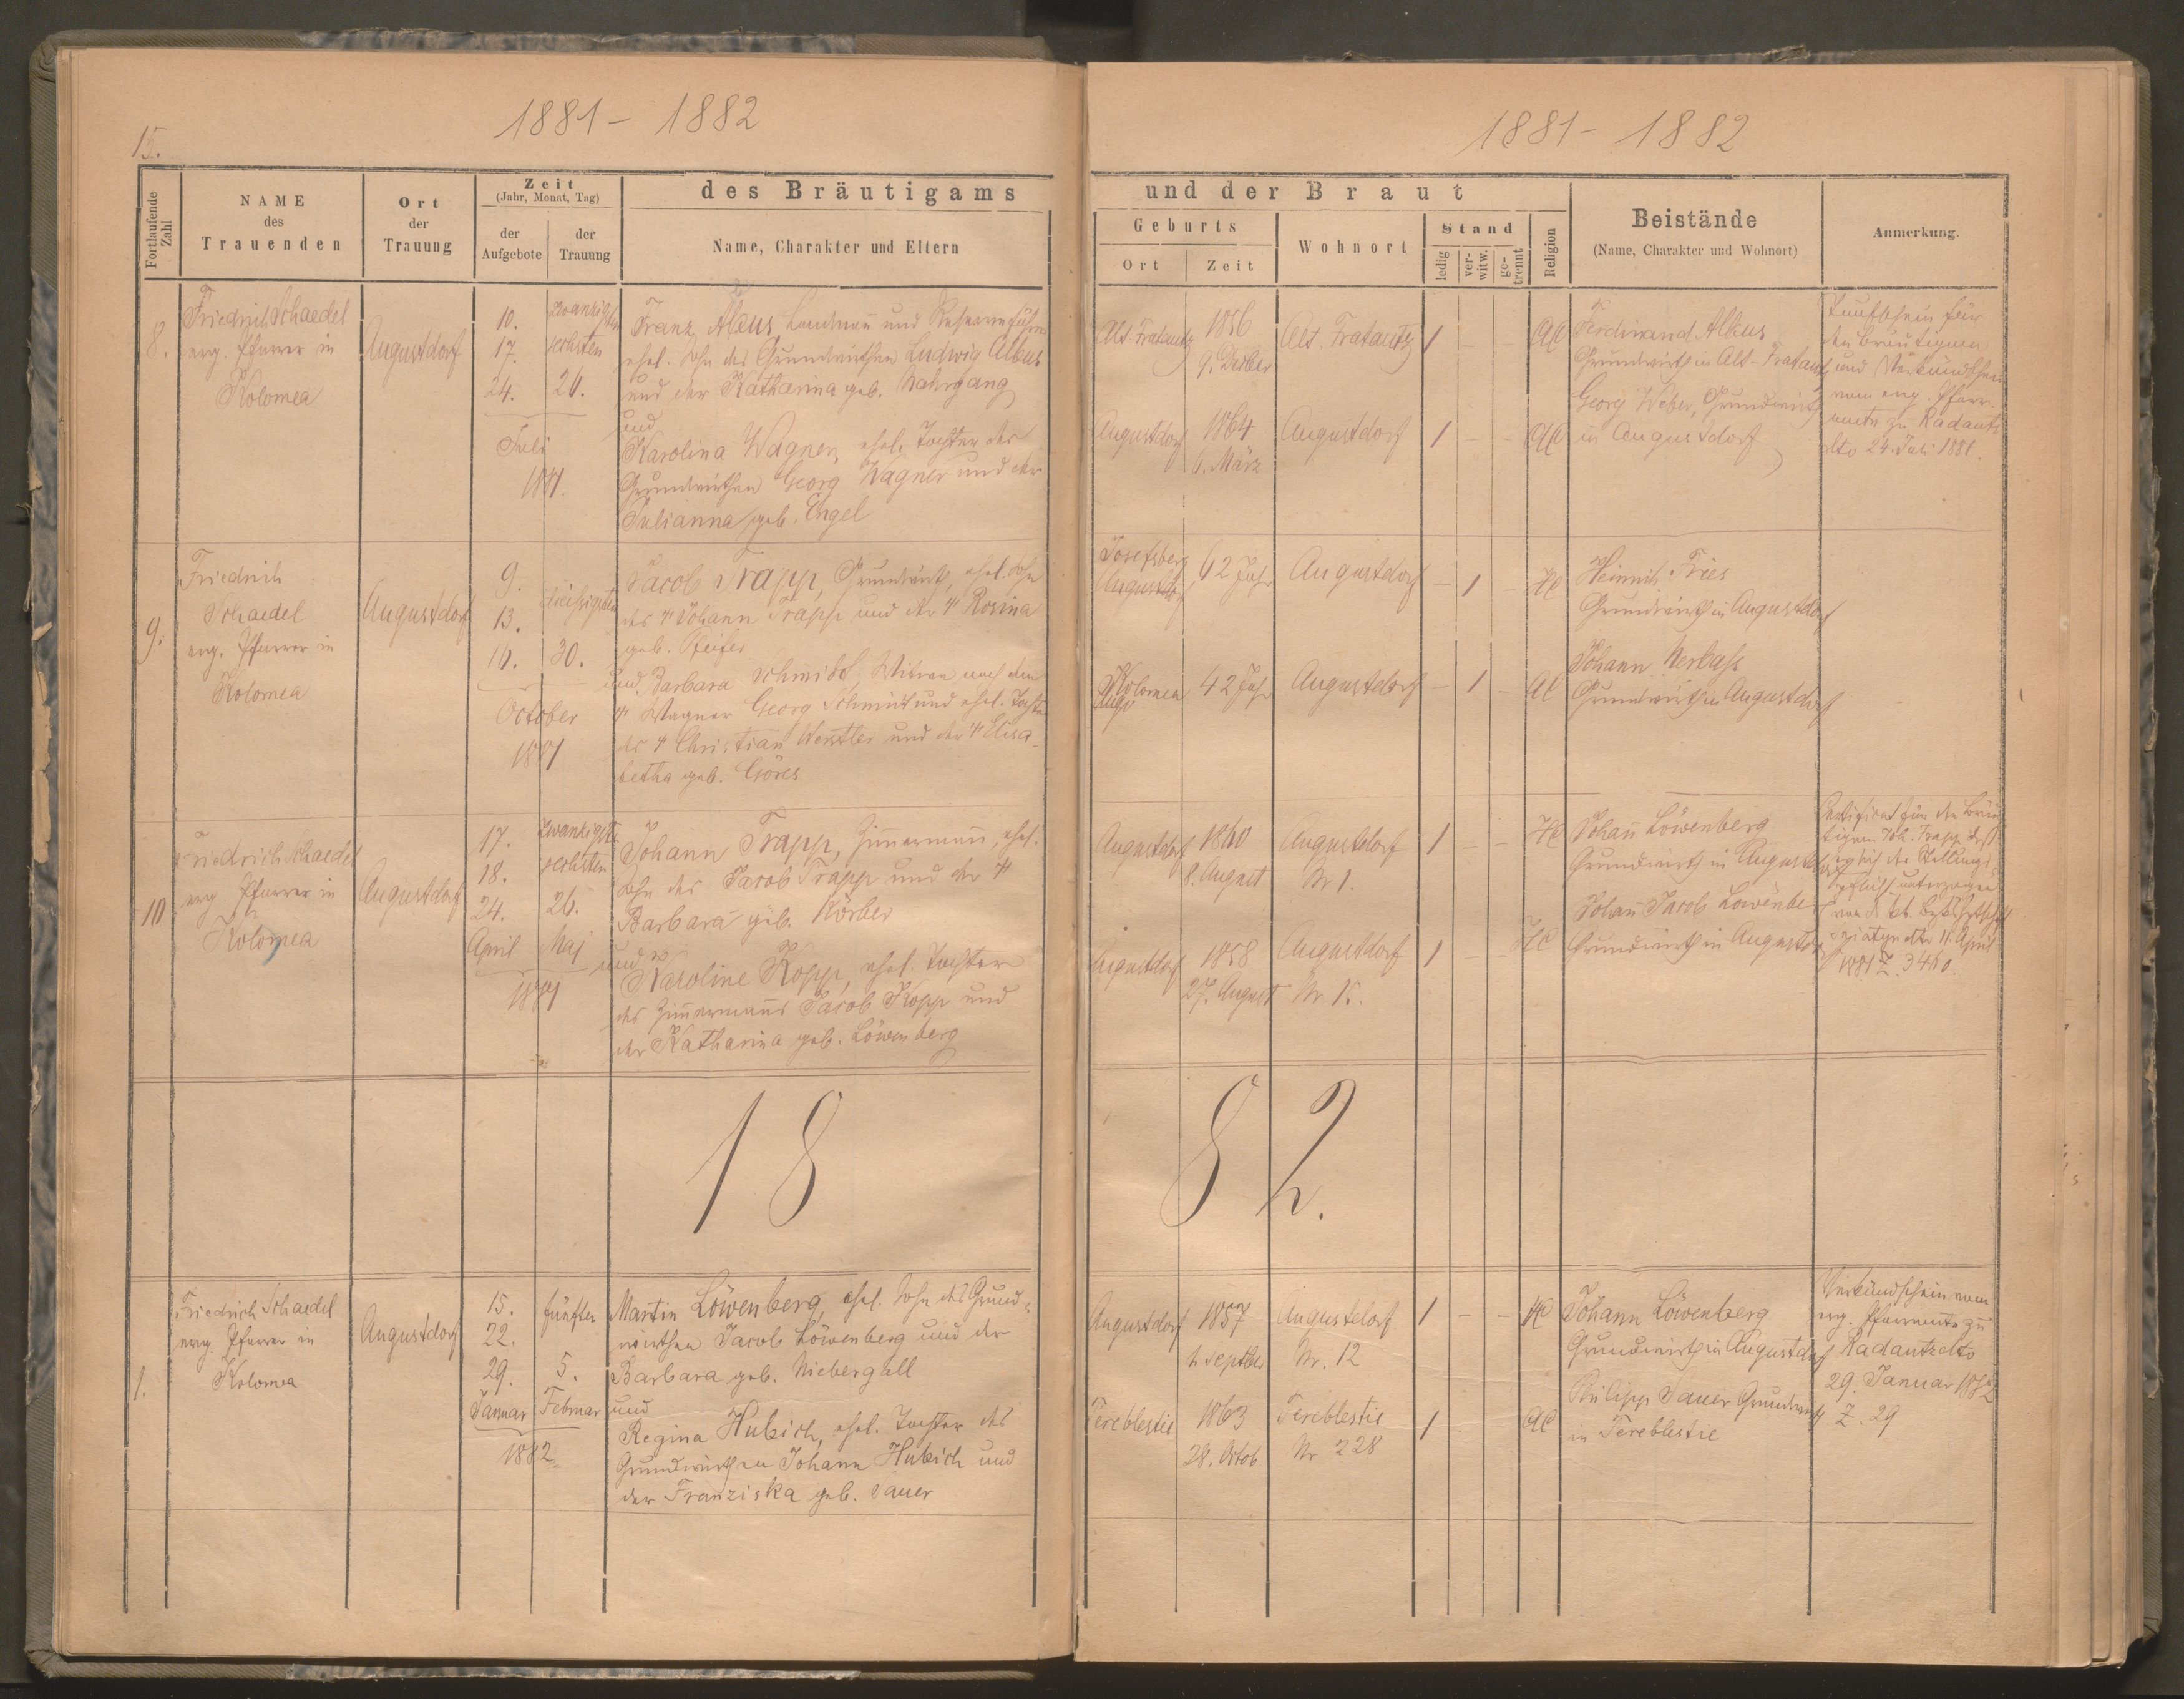 1881 - 1882
15.
Fortlaufende Zahl
NAME
des
Trauenden
Ort
der
Trauung
Zeit
(Jahr, Monat, Tag)
der
Aufgebote
der
Trauung
des Bräutigams
Name, Charakter und Eltern
8.
Friedrich Schaedel
evg. Pfarrer in
Kolomea
Augustdorf
10.
17.
24.
zwanzigsten
sechsten
26.
Juli
1881.
Franz Albus, Landmann und
ehel. Sohn des Grundwirthen Ludwig Albus
und der Katharina geb. Nahrgang
und
Karolina Wagner, ehel. Tochter des
Grundwirthen Georg Wagner und der
Julianna geb. Engel
9.
Friedrich
Schaedel
evg. Pfarrer in
Kolomea
Augustdorf
9.
13.
16.
dreißigsten
30.
October
1881
Jacob Trapp, Grundwirth, ehel. Sohn
des † Johann Trapp und der † Rosina
geb. Pfeifer
und Barbara Schmidt, Witwe nach dem
† Wagner Georg Schmidt und ehel. Tochter
des † Christian und der † Elisa-
betha geb. Göres
10
Friedrich Schaedel
evg. Pfarrer in
Kolomea
Augustdorf
17.
18.
24.
April
zwanzigsten
sechsten
26.
Maj
1881
Johann Trapp, Zimmermann, ehel.
Sohn des Jacob Trapp und der †
Barbara geb. Körber
und
Karoline Kopp, ehel. Tochter
des Zimmermanns Jacob Kopp und
der Katharina geb. Löwenberg
18
1.
Friedrich Schaedel
evg. Pfarrer in
Kolomea
Augustdorf
15.
22.
29.
Januar
fünften
5.
Februar
1882
Martin Löwenberg, ehel. Sohn des Grund-
wirthen Jacob Löwenberg und der
Barbara geb. Niebergall
und
Regina Hubich, ehel. Tochter des
Grundwirthen Johann Hubich und
der Franziska geb. Sauer
1881 - 1882
und der Braut
Geburts
Ort
Zeit
Wohnort
Stand
ledig
ver-
witw.
ge-
trennt
Religion
Beistände
(Name, Charakter und Wohnort)
Anmerkung.
Alt Fratautz
1856
9. Dezber
Alt. Fratautz
1
AC
Ferdinand Albus
Grundwirth in Alt-Fratautz
Taufschein für
den Bräutigam
und Verkündschein
vom evg. Pfarr-
amte zu Radautz
dto 24. Juli 1881.
Augustdorf
1864
6. März
Augustdorf
1
AC
Georg Weber, Grundwirth
in Augustdorf
Josefsberg
62 Jahr
Augustdorf
1
HC
Heinrich Fries
Grundwirth in Augustdorf
Kolomea
42 Jahr
Augustdorf
1
AC
Johann Nerbass
Grundwirth in Augustdorf
Augustdorf
1860
8. August
Augustdorf
Nr 1.
1
HC
Johann Löwenberg
Grundwirth in Augustdorf
Certificat für den Bräu-
tigam Joh. Trapp
der Stellungs-
pflicht unterzogen
dto 11. April
1881 Z. 3460.
Augustdorf
1858
27. August
Augustdorf
Nr. 15.
1
HC
Johann Jacob Löwenberg
Grundwirth in Augustdorf
82.
Augustdorf
1857
1. Septber
Augustdorf
Nr. 12
1
HC
Johann Löwenberg
Grundwirth in Augustdorf
Verkündschein vom
evg. Pfarramte zu
Radautz dto
29. Januar 1882
Z. 29
Tereblestie
1863
28. Octob
Tereblestie
Nr 228
1
AC
Philipp Sauer Grundwirth
in Tereblestie